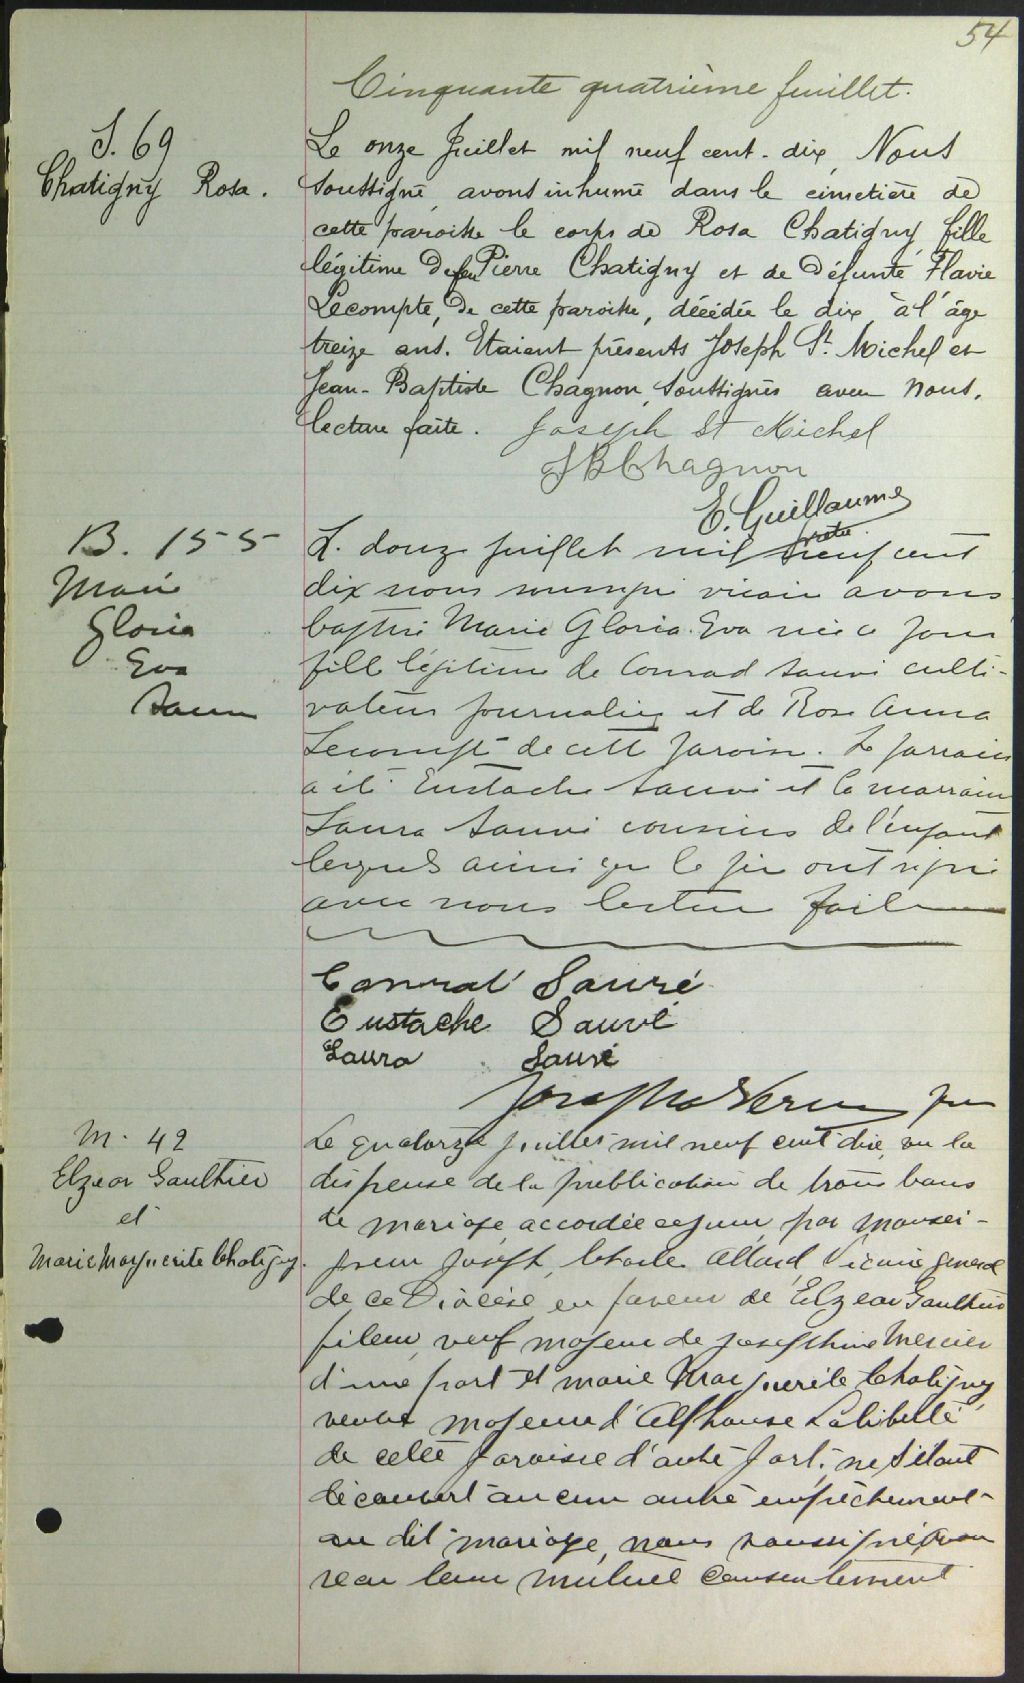 54
Cinquante quatrième feuillet.
S. 69
Chatigny Rosa.
Le onze Juillet mil neuf cent-dix, Nous
soussigné, avons inhumé dans le cimetière de
cette paroisse le corps de Rosa Chatigny, fille
légitime de feu Pierre Chatigny et de défunte Flavie
Lecompte, de cette paroisse, décédée le dix, à l'âge
treize ans. Etaient présents Joseph St. Michel et
Jean-Baptiste Chagnon, soussignés avec nous.
lecture faite. Joseph St Michel
J B Chagnon
E. Guillaume
ptre
B. 155
Marie
Gloria
Eva
Sauvé
Le douze juillet mil neuf cent
dix nous soussigné vicaire avons
baptisé Marie Gloria Eva née ce jour
fille légitime de Conrad Sauvé culti-
vateur journalier et de Rose Anna
Lecompte de cette paroisse. Le parrain
a été Eustache Sauvé et la marraine
Laura Sauvé cousins de l'enfant
lesquels ainsi que le père ont signé
avec nous lecture faite
Conrad Sauvé
Eustache Sauvé
Laura Sauvé
Joseph ptre
M. 42
Elzear Gaulthier
et
Marie Marguerite Chatigny.
Le quatorze juillet mil neuf cent dix, vu la
dispense de la publication de trois bans
de mariage accordée ce jour par Monsei-
gneur Joseph Charle Allard Vicaire général
de ce Diocèse en faveur de Elzear Gaulthier
fileur, veuf majeur de Josephine Mercier
d'une part et Marie Marguerite Chatigny
veuve majeure d'Alphonse Laliberté
de cette paroisse d'autre part; ne s'étant
découvert aucun autre empêchement
au dit mariage, nous soussigné avons
recu leur mutuel consentement